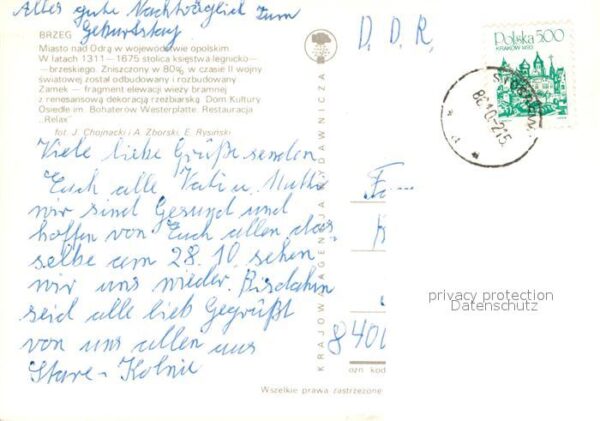 Alles gute Nachträglich zum
Geburtstag
BRZEG
Miasto nad Odrą w województwie opolskim.
W latach 1311—1675 stolica księstwa legnicko-
-brzeskiego. Zniszczony w 80% w czasie II wojny
światowej został odbudowany i rozbudowany
Zamek — fragment elewacji wieży bramnej
z renesansową dekoracją rzeźbiarską. Dom Kultury
Osiedle im. Bohaterów Westerplatte. Restauracja
„Relax"
fot. J. Chojnacki i A. Zborski, E. Rysiński
Viele liebe Grüße senden
Euch alle Vati u. Mutti
wir sind Gesund und
hoffen von Euch allen das
selbe am 28.10. sehen
wir uns wieder. Bisdahin
seid alle lieb Gegrüßt
von uns allen aus
Stare-Kolnie
KRAJOWA AGENCJA WYDAWNICZA
Wszelkie prawa zastrzeżone
D. D. R,
Polska 500
KRAKÓW
Fa
8400
ozn kod
privacy protection
Datenschutz